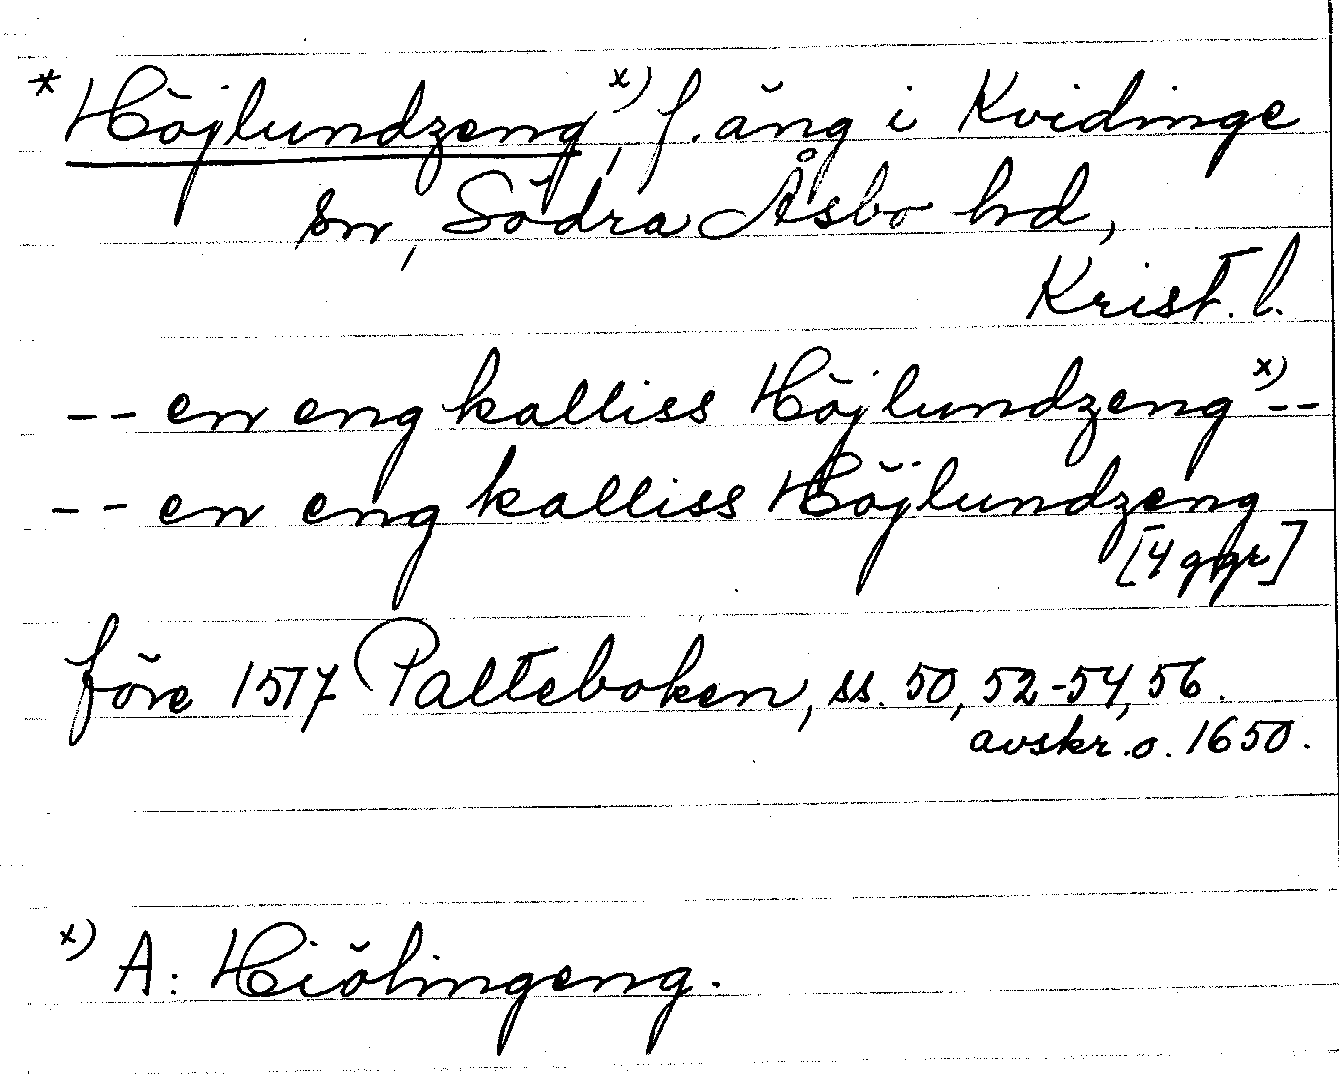 * Höjlundzeng x), f. äng i Kvidinge
sn, Södra Åsbo hd,
Krist. l.
-- en eng kalliss Höjlundzeng x) --
-- en eng kalliss Höjlundzeng
[4 ggr]
före 1517 Palteboken, ss. 50, 52-54, 56.
avskr. o. 1650.
x) A: Hiölingeng.